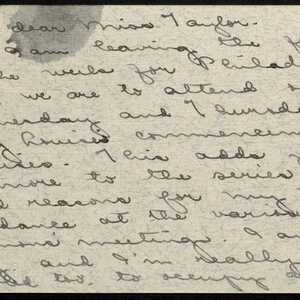 Dear Miss Taylor.
I am leaving the
the
we are to attend
and Thursd
Louise's commencem
ises. This adds
more to the series
d reasons for my
dance at the vario
ions meeting. I a
and I'm really
to occupy